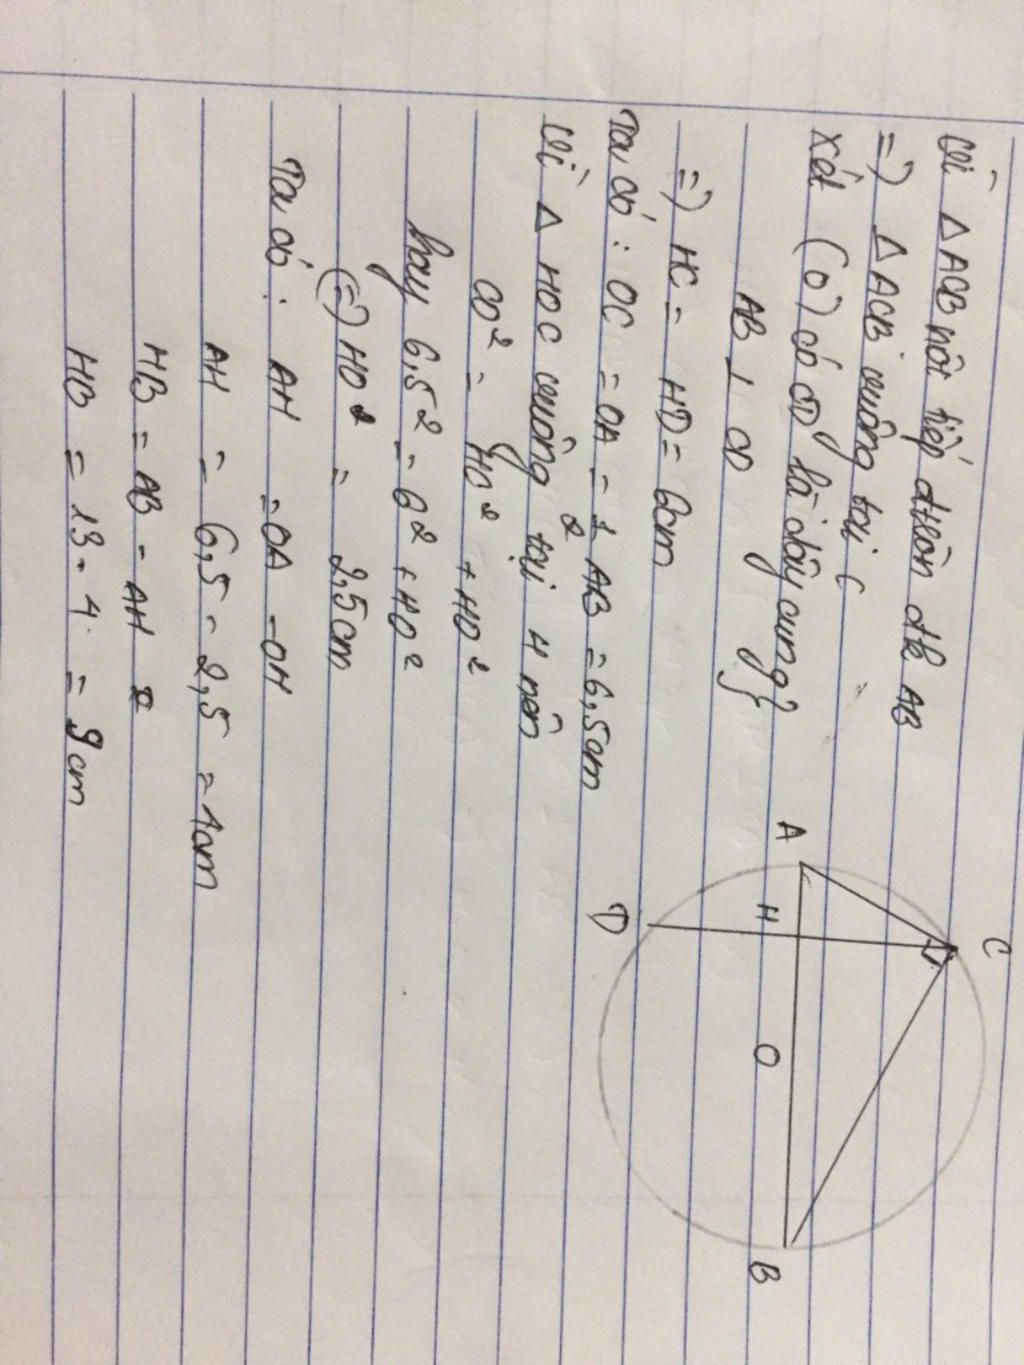 Vì △ACB nội tiếp đtròn đk AB
=) △ACB vuông tại C
Xét (O) có CD là dây cung }
AB ⊥ CD }
=) HC = HD = 6cm
Ta có : OC = OA = 1/2 AB = 6,5cm
Vì △ HOC vuông tại H nên
CO² = HC² + HO²
hay 6,5² = 6² + HO²
(=) HO² = 2,5cm
Ta có : AH = OA - OH
AH = 6,5 - 2,5 = 4cm
HB = AB - AH
HB = 13 - 4 = 9cm
C
A
H
D
O
B